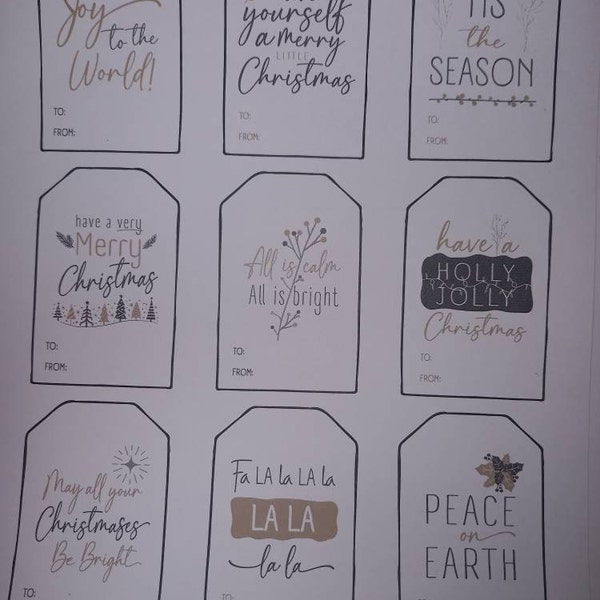 Joy
to the
World!
TO:
FROM:
yourself
a merry
LITTLE
Christmas
TO:
FROM:
'TIS
the
SEASON
TO:
FROM:
have a very
Merry
Christmas
TO:
FROM:
All is calm
All is bright
TO:
FROM:
have a
HOLLY
JOLLY
Christmas
TO:
FROM:
May all your
Christmases
Be Bright
TO:
Fa LA la LA la
LA LA
la la
TO:
PEACE
on
EARTH